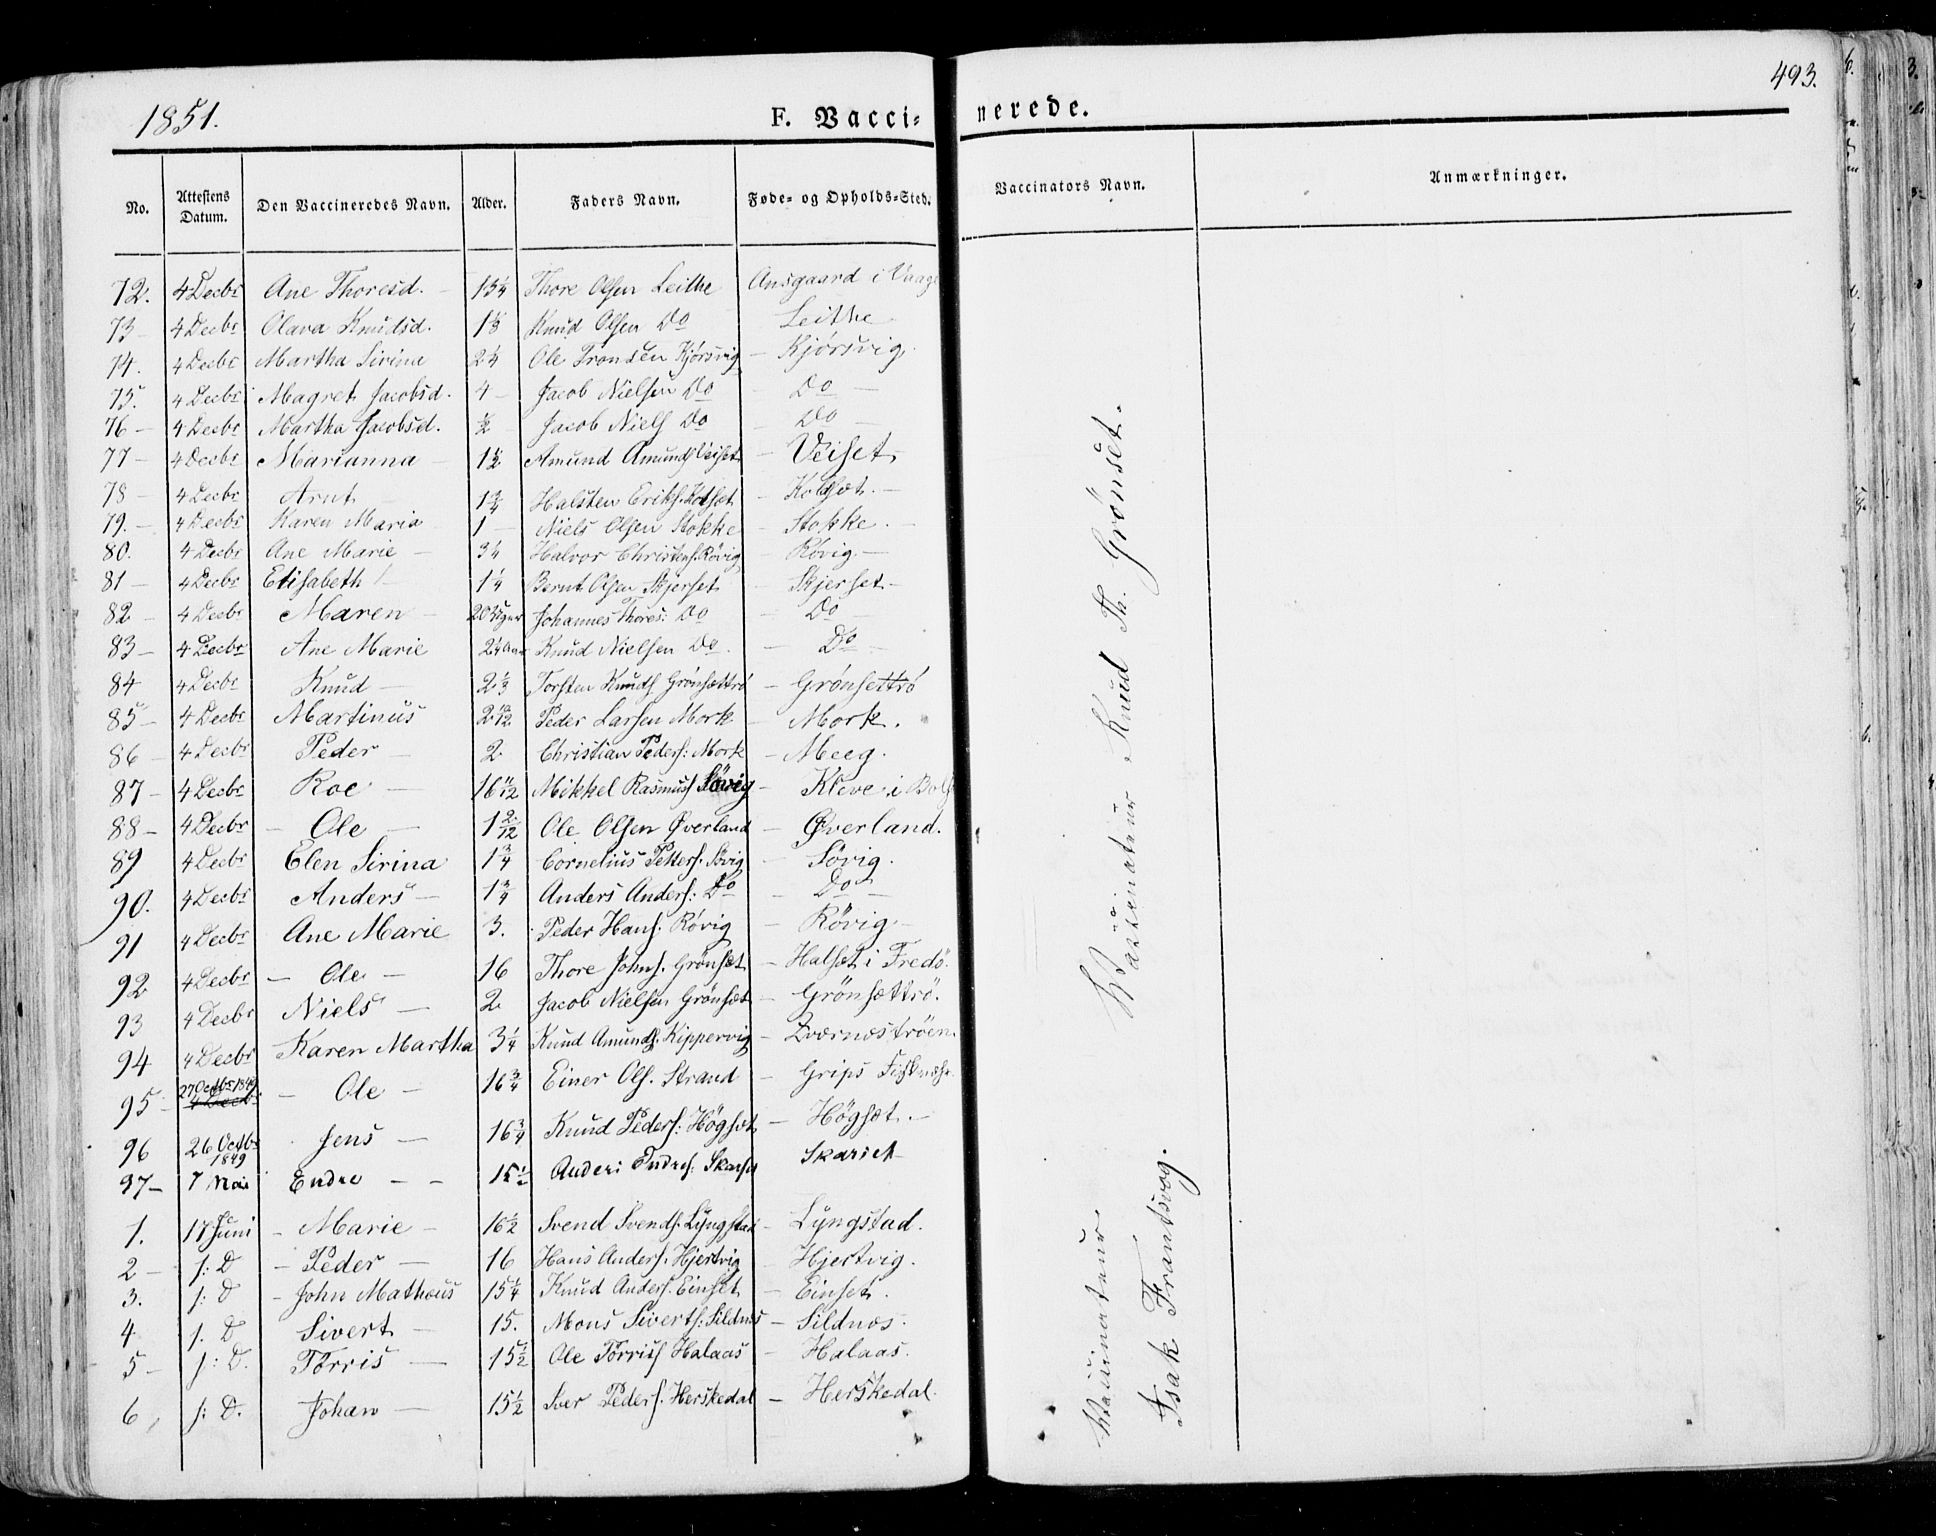 1851.
F. Vaccinerede.
493.
No. Attestens Datum. Den Vaccineredes Navn. Alder. Faders Navn. Føde- og Opholds-Sted. Vaccinators Navn. Anmærkninger.
72. 4 Decbr Ane Thoresd. 13¼ Thore Olsen Leithe Ansgaard i Vaage
73 – 4 Decbr Olava Knudsd. 1⅓ Knud Olsen Do Leithe
74. 4 Decbr Martha Sirina 2¼ Ole Tronsen Kjörsvig – Kjörsvig.
75. 4 Decbr Magret Jacobsd. 4 – Jacob Nielsen Do – Do –
76 – 4 Decbr Martha Jacobsd. ½ Jacob Niels Do – Do –
77 – 4 Decbr Marianna – 1½ Amund Amunds Veiset – Veiset
78 – 4 Decbr Arnt – 1¾ Halsten Eriks. Kolsæt – Kolsæt. –
79. – 4 Decbr Karen Maria 1 – Niels Olsen Stokke – Stokke. –
80. 4 Decbr Ane Marie – 3¼ Halvor Christens. Rövig – Rövig. –
81 – 4 Decbr Elisabeth – 1¼ Bernt Olsen Skjerset – Skjerset –
82 – 4 Decbr Maren – 20 Uger Johannes Thores: Do – Do –
83 – 4 Decbr Ane Marie 2¼ Aar Knud Nielsen Do. – Do –
84 4 Decbr Knud – 2⅓ Torsten Knuds Grönsættrö – Grönsettrö
85 – 4 Decbr Martinus 2 10/12 Peder Larsen Mork – Mork.
86 – 4 Decbr Peder – 2. Christian Peders: Mork – Meeg.
87 – 4 Decbr Roe – 16 11/12 Mikkel Rasmus Sövig – Kleve i Bols
88 – 4 Decbr – Ole – 1 2/12 Ole Olsen Øverland – Øverland.
89 4 Decbr Elen Sirina 1¾ Cornelius Petters. Sövig – Sövig.
90. 4 Decbr Anders – 1¾ Anders Anders: Do – Do –
91 4 Decbr Ane Marie 3. Peder Hans. Rövig – Rövig. –
92 4 Decbr – Ole – 16 Thore Johns. Grönsæt – Halsæt i Fredö.
93 4 Decbr Niels – 2 Jacob Nielsen Grönsæt – Grönsættrö.
94 4 Decbr Karen Martha 3¼ Knud Amunds. Kippervig – Zværnæströen
95 – 27 Octbr 1849 4 Decbr – Ole – 16¾ Einer Ols. Strand – Grips
96 26 Octbr 1849 Jens – 16¾ Knud Peders: Högsæt – Högsæt. –
97 – 7 Mai Endre – – 15½ Anders Endres: Skarset Skarset
1. 17 Juni – Marie – 16½ Svend Svends. Lÿngstad – Lÿngstad.
2 – s: D – Peder – 16 Hans Anders. Hjertvig – Hjertvig.
3. s: D – John Mathæus 15¼ Knud Anders. Einset – Einset.
4 s. D Sivert – 15. Mons Siverts: Sildnes – Sildnæs.
5 – s: D. Törris – 15½ Ole Törriss Halaas – Halaas.
6, s: D. Johan – 15½ Iver Peders. Herskedal – Herskedal.
Vaccinateur Knud Th. Grönset.
Vaccinateur
Isak Frantsvog.